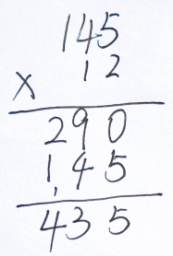 145
× 12
290
145
435